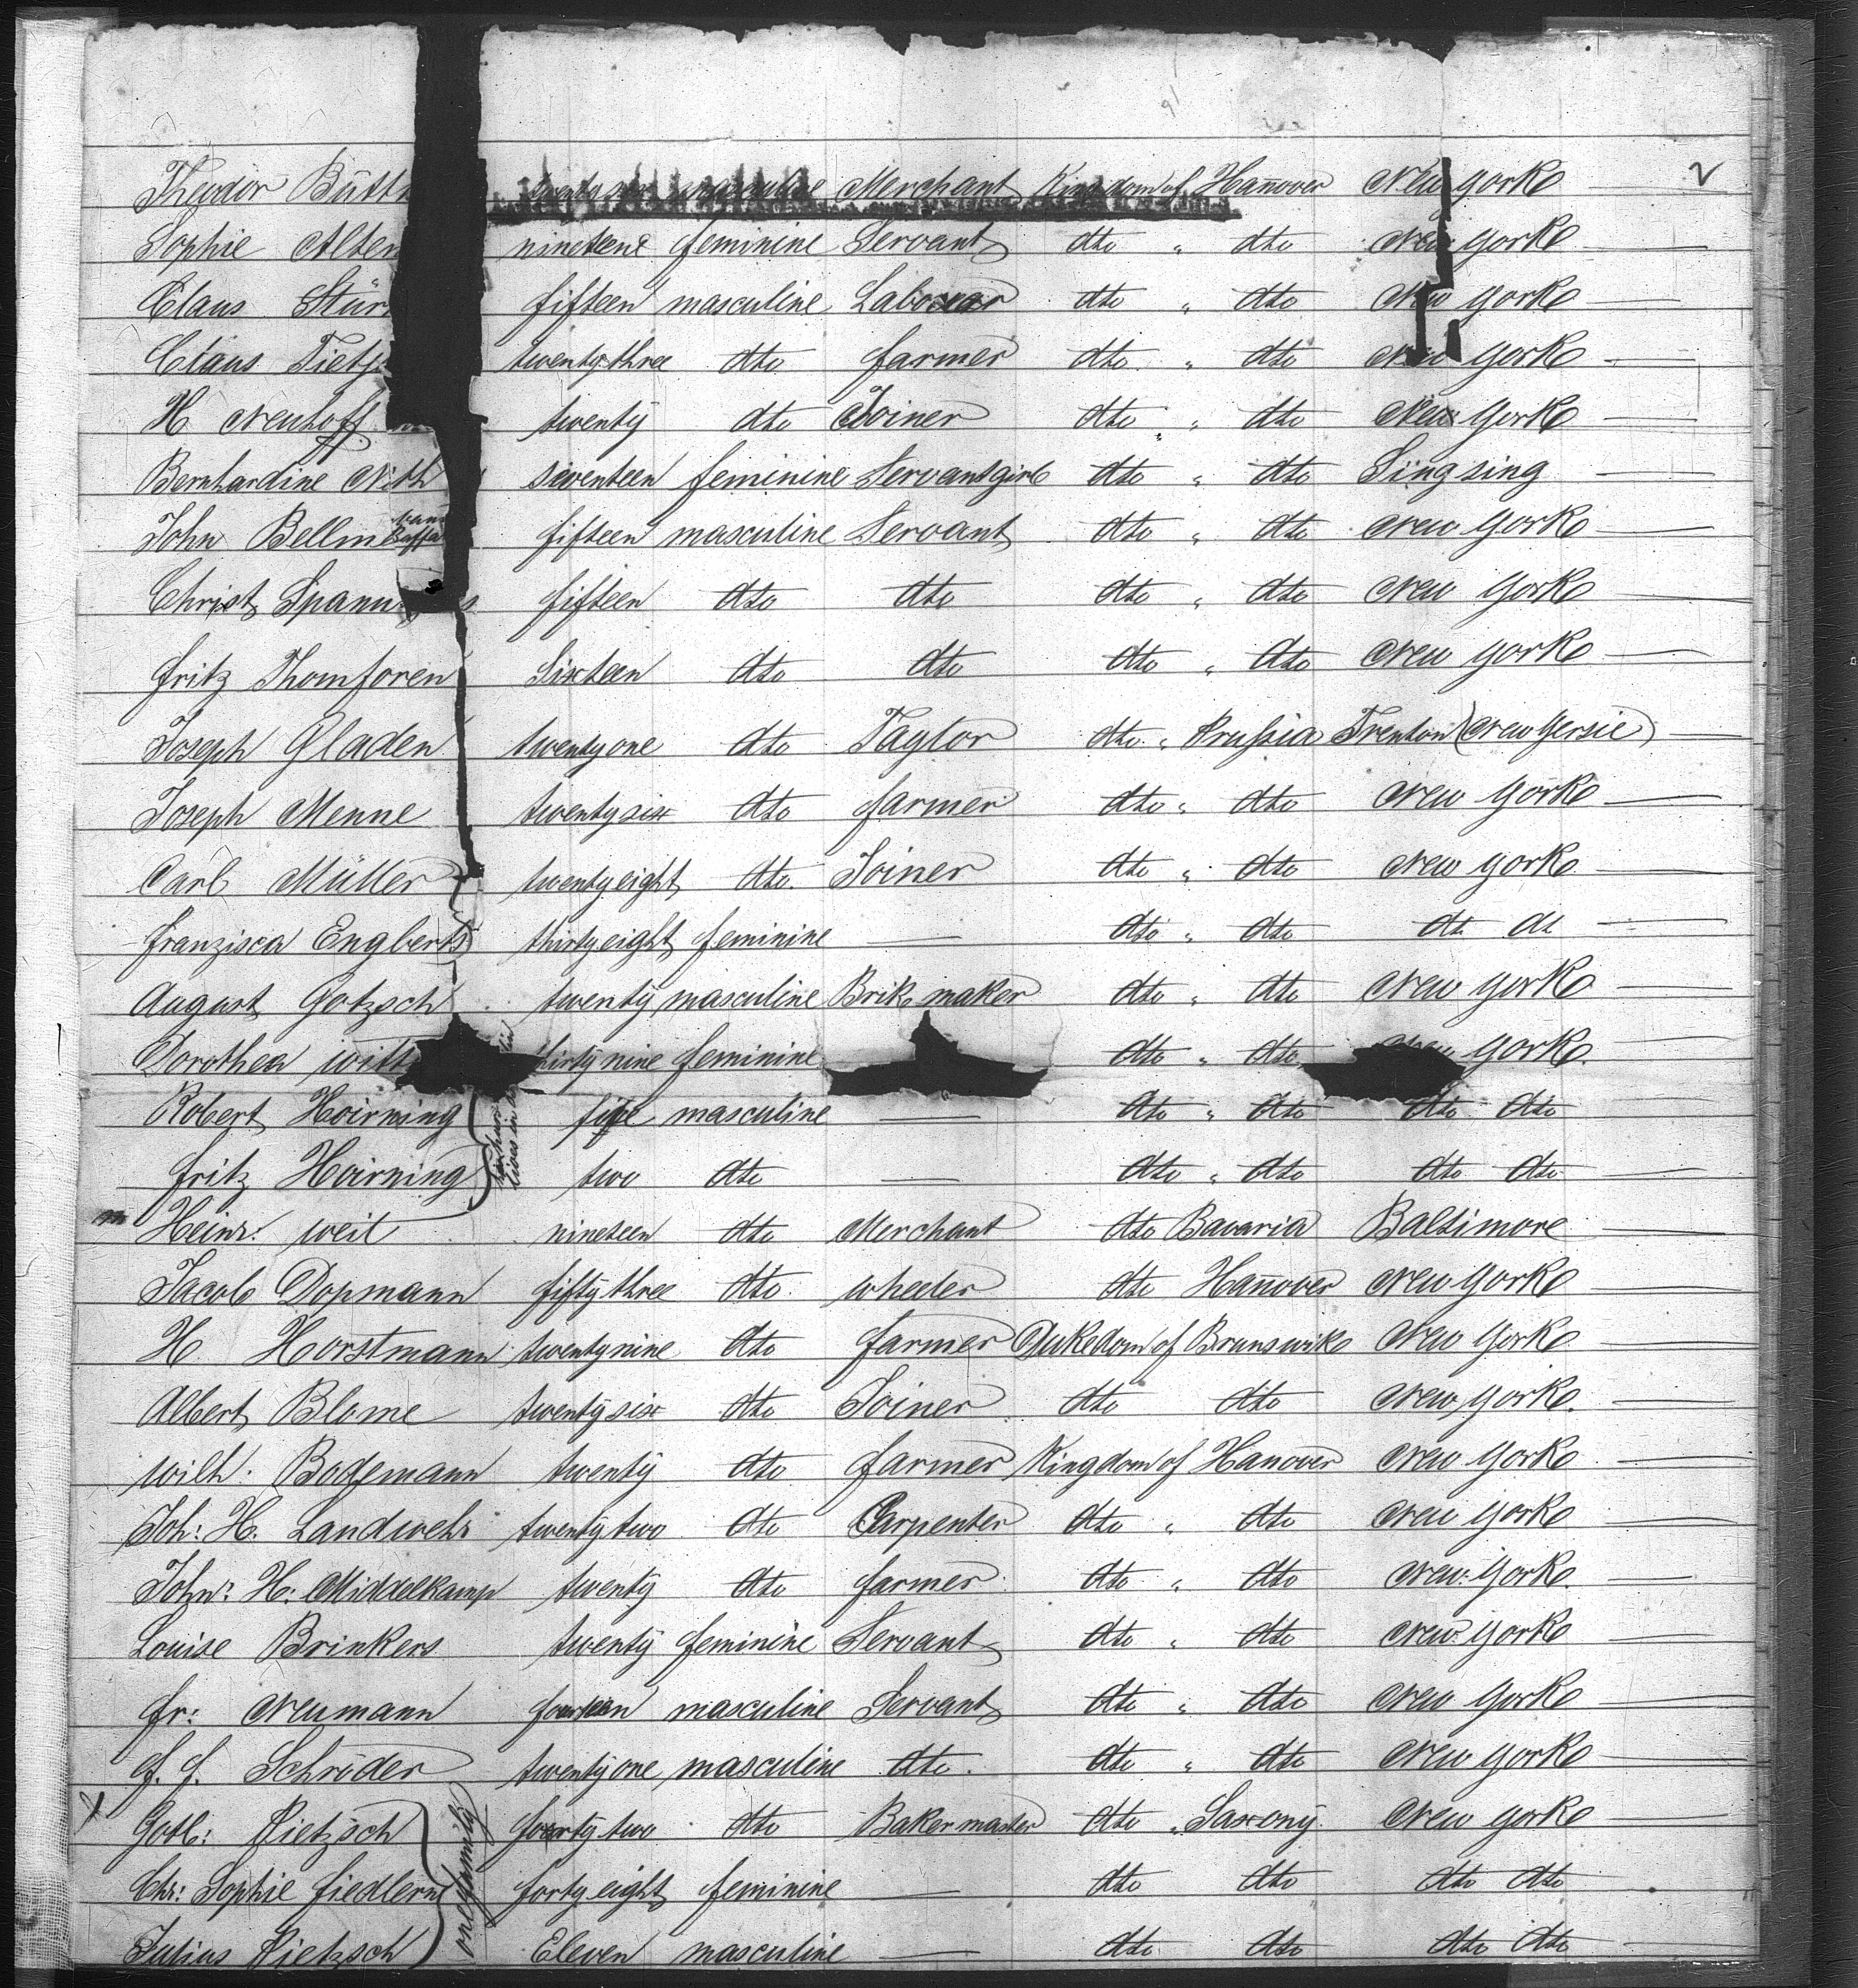 2
Theodor Bütt twenty six masculine Merchant Kingdom of Hanover New York
Sophie Alten nineteene feminine Servant dto " dto New York
Claus Stür fifteen masculine Laborer dto " dto New York
Claus Tietj twenty three dto farmer dto " dto New York
H Neuhoff twenty dto Joiner dto " dto New York
Bernhardine Nith seventeen feminine Servantgirl dto " dto Singsing
John Bellm fifteen masculine Servant dto " dto New York
Christ Spann fifteen dto dto dto " dto New York
fritz Thomforen Sixteen dto dto dto " dto New York
Joseph Gladen twenty one dto Taylor dto " Prussia Trenton (New Yersie)
Joseph Menne twenty six dto farmer dto " dto New York
Carl Müller twenty eight dto Joiner dto " dto New York
franzisca Engberts thirty eight feminine — dto " dto dt dt
August Gotzsch twenty masculine Brik maker dto " dto New York
Dorothea witt thirty nine feminine dto " dto New York
Robert Hoirning five masculine — dto " dto dto dto
fritz Hoirning two dto — dto " dto dto dto
Heinr: weil nineteen dto Merchant dto Bavaria Baltimore
Jacob Dopmann fifty three dto wheeler dto Hanover New York
H Horstmann twenty nine dto farmer Dukedom of Brunswik New York
Albert Blome twenty six dto Joiner dto dto New York.
wilh: Bodemann twenty dto farmer Kingdom of Hanover New York
Joh: H. Landwehr twenty two dto Carpenter dto " dto New York
John: H: Middelkamp twenty dto farmer dto " dto New York.
Louise Brinkers twenty feminine Servant dto " dto New York
fr: Neumann fourteen masculine Servant dto " dto New York
f. f. Schröder twenty one masculine dto. dto " dto New York
Gotl: Pietzsch forty two dto Baker master dto " Saxony New York
Chr: Sophie fiedlern forty eight feminine — dto dto dto dto
one family
Julius Pietzsch Eleven masculine — dto dto dto dto